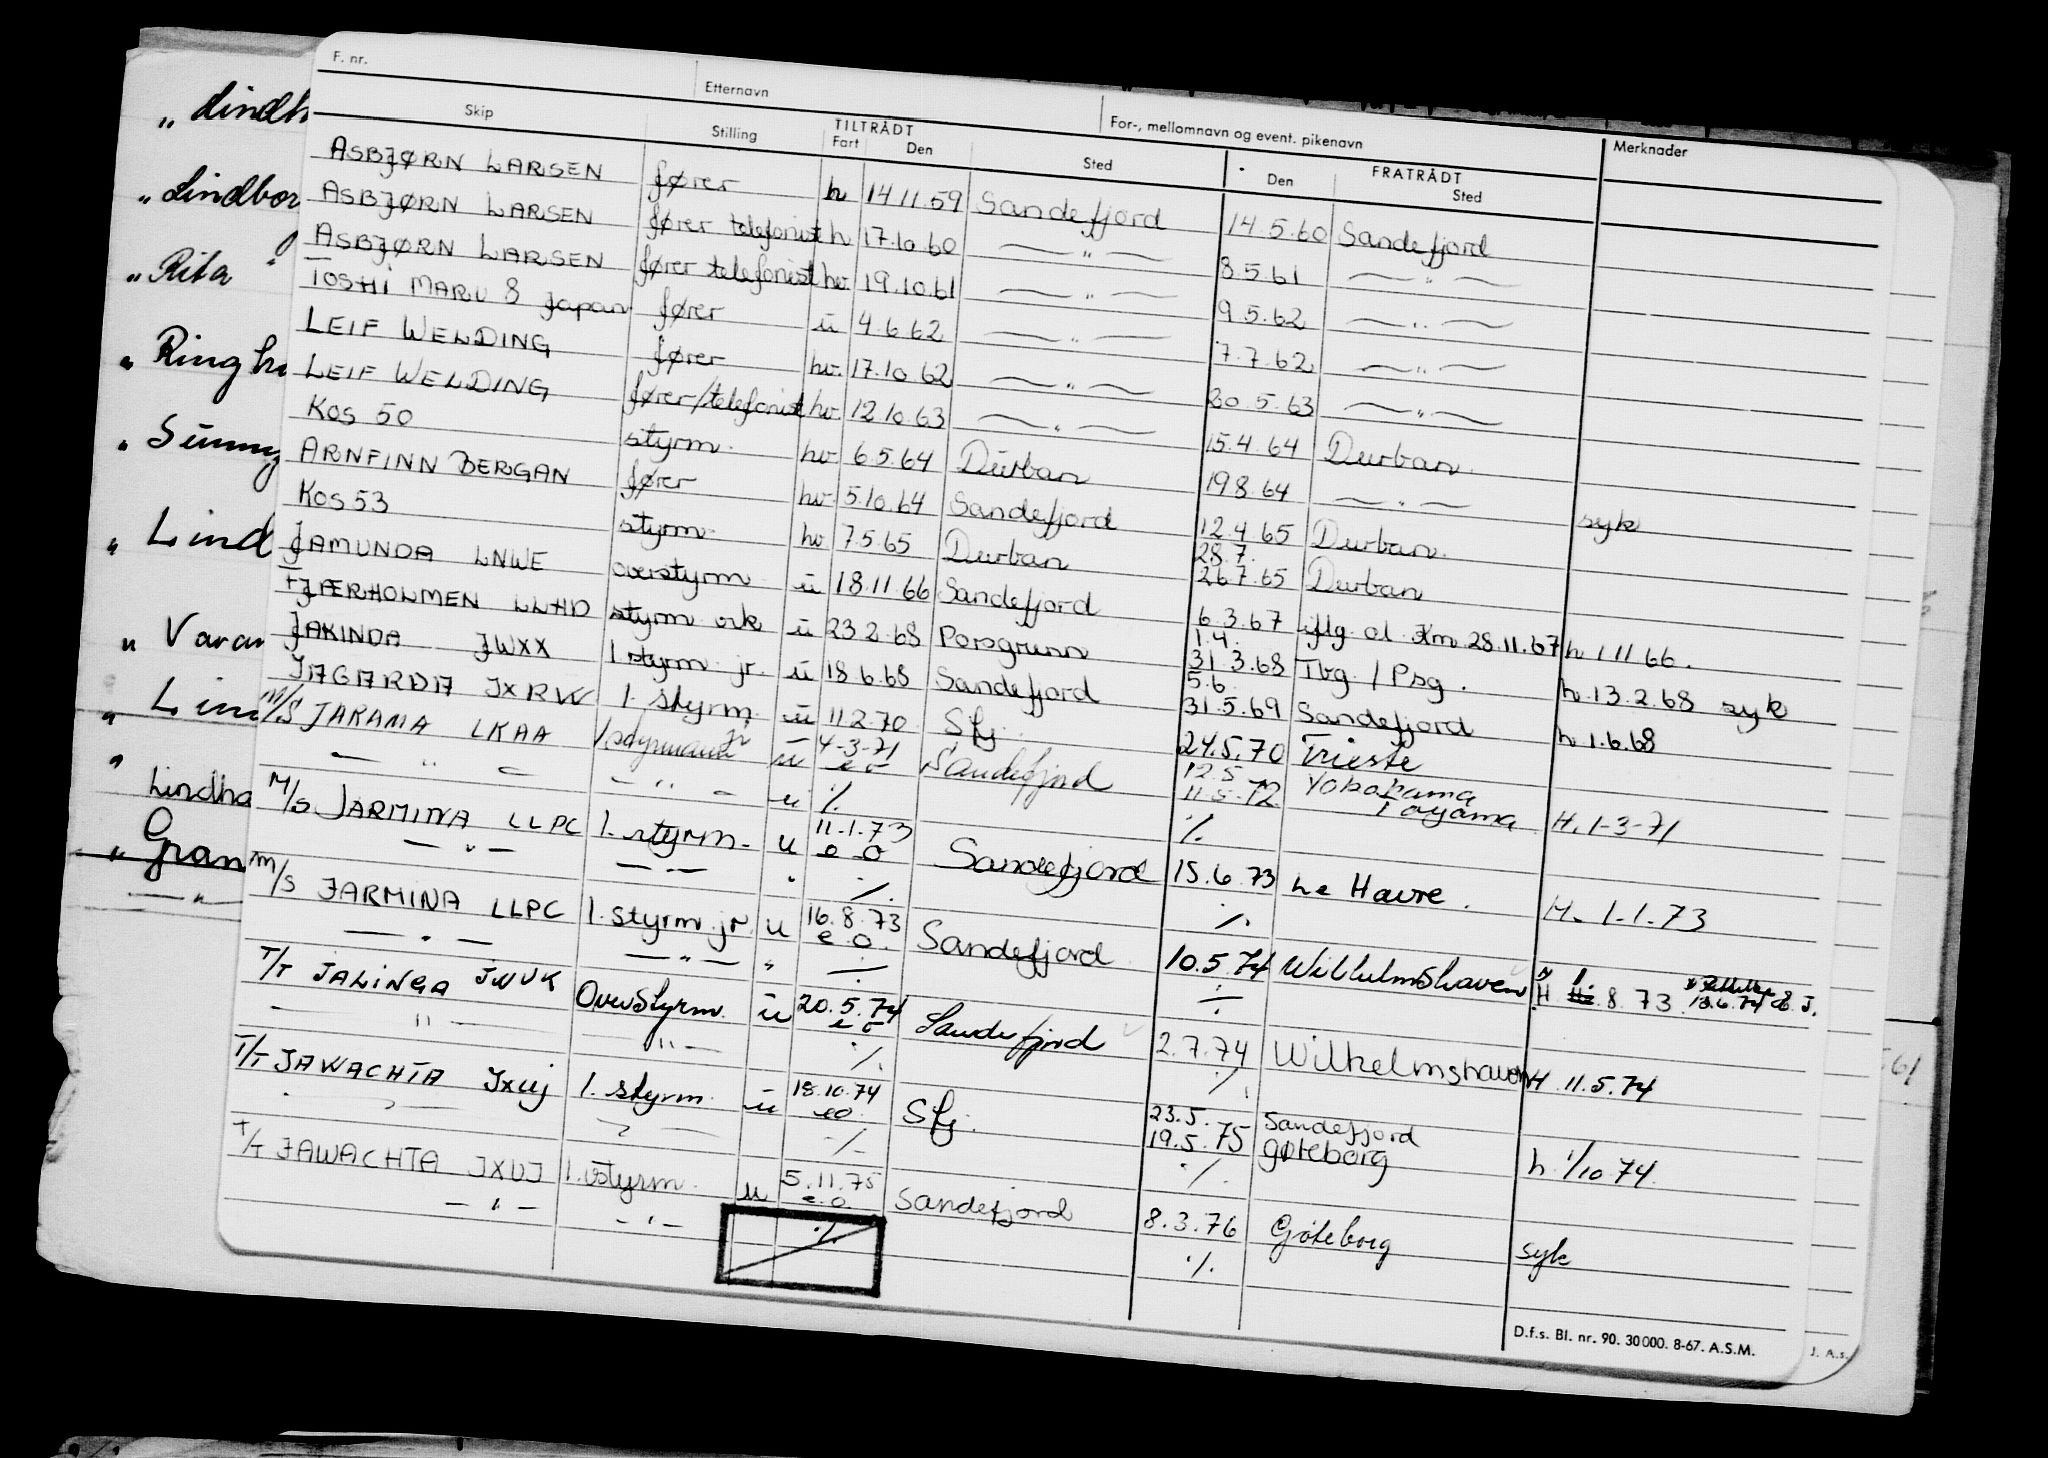 F. nr.
Etternavn
For-, mellomnavn og event. pikenavn
Merknader
Skip Stilling TILTRÅDT Fart Den Sted FRATRÅDT Den Sted
ASBJØRN LARSEN fører h 14.11.59 Sandefjord 14.5.60 Sandefjord
ASBJØRN LARSEN fører telefonist h 17.10.60 — " — 8.5.61 — " —
ASBJØRN LARSEN fører telefonist hv. 19.10.61 — " — 9.5.62 — " —
TOSHI MARU 8 Japan fører u 4.6.62 — " — 7.7.62 — " —
LEIF WELDING fører hv. 17.10.62 — " — 20.5.63 — " —
LEIF WELDING fører/telefonist hv. 12.10.63 — " — 15.4.64 Durban
KOS 50 styrm. hv 6.5.64 Durban 19.8.64 — " — syk
ARNFINN BERGAN fører hv 5.10.64 Sandefjord 12.4.65 Durban.
KOS 53 styrm. hv 7.5.65 Durban 28.7. 26.7.65 Durban
JAMUNDA LNWE overstyrm u 18.11.66 Sandefjord 6.3.67 iflg. Km 28.11.67 h 1.11.66.
TJÆRHOLMEN LLHD styrm vik u 23.2.68 Porsgrunn 1.4. 31.3.68 Tbg. / Psg. h.13.2.68 syk
JAKINDA JWXX 1 styrm jr. u 18.6.68 Sandefjord 5.6. 31.5.69 Sandefjord h 1.6.68
JAGARDA JXRW 1. styrm. u 11.2.70 Sfj. 24.5.70 Trieste
M/S JARAMA LKAA 1 styrmann jr u 4-3-71 e o Sandefjord 12.5 11.5.72 Yokohama Toyama H. 1-3-71
— " — — " — u ./. ./.
M/S JARMINA LLPC 1. styrm. u 11.1.73 e o Sandefjord 15.6.73 Le Havre. H. 1.1.73
— " — — — . ./. ./.
M/S JARMINA LLPC 1. styrm. jr. u 16.8.73 e o. Sandefjord 10.5.74 Wilhelmshaven H 8.73 18.6.74
— " — — " — " ./. ./.
T/T JALINGA JWUK Overstyrm. u 20.5.74 e o Sandefjord 2.7.74 Wilhelmshaven H 11.5.74
— " — — " — ./. ./.
T/T JAWACHTA JXUJ 1. styrm. u 18.10.74 eo. Sfj. 23.5. 19.5.75 Sandefjord Gøteborg h 1/10 74.
— " — — " — ./. ./.
T/T JAWACHTA JXUJ 1. styrm. u 5.11.75 e.o. Sandefjord 8.3.76 Gøteborg syk
— " — — " — ./. ./.
D.f.s. Bl. nr. 90. 30 000. 8-67. A.S.M.
J. A.s.
61
" Lindh
" Lindbor
" Rita "
" Ringh
" Sunny
" Lind
" Varan
" Lin
"
Lindha
" Gran
— " —